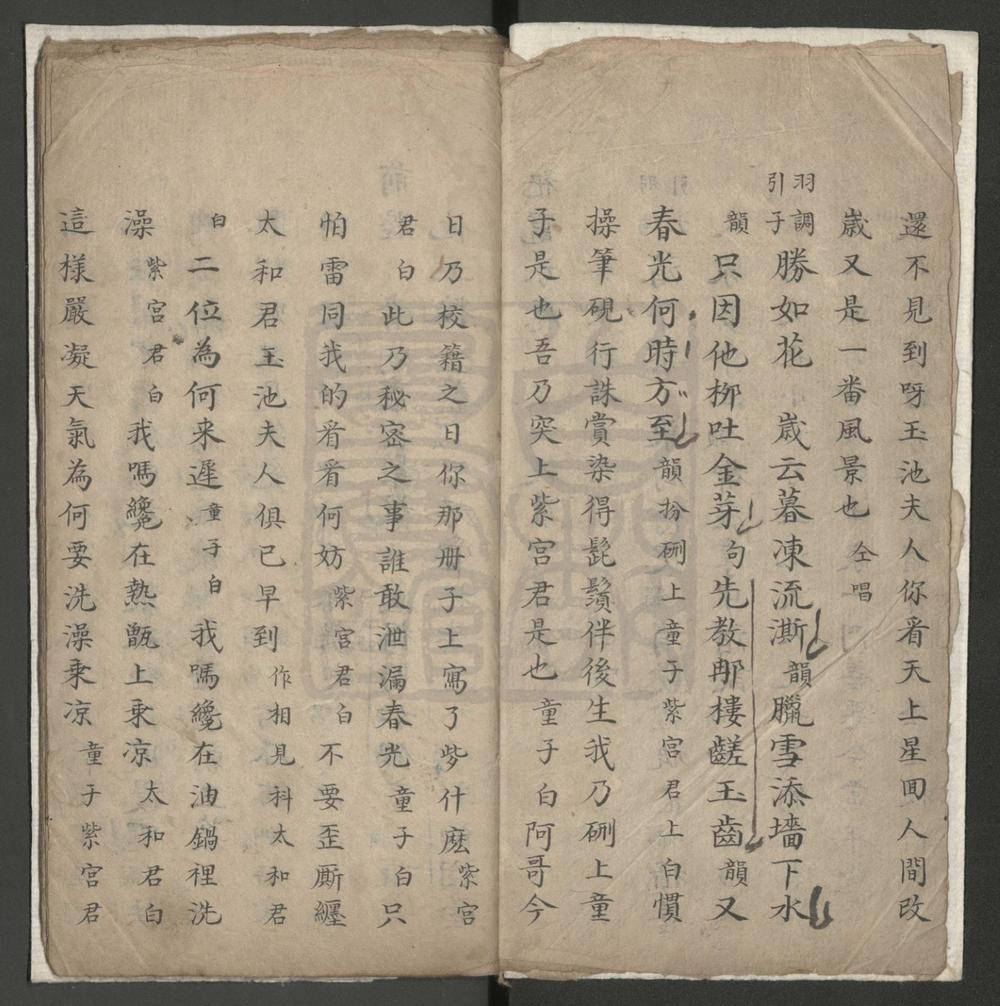 還不見到呀玉池夫人你看天上星囬人間改
歲又是一番風景也 仝唱
羽調引子 勝如花 歲云暮凍流澌 韻 臘雪添墻下水
韻 只因他柳吐金芽 句 先教那樓䶥玉齒 韻 又
春光何時方至 韻 扮硎上童子紫宮君上白 慣
操筆硯行誅賞染得髭鬚伴後生我乃硎上童
子是也吾乃突上紫宮君是也 童子白 阿哥今
日乃校籍之日你那册子上寫了些什麽 紫宮
君白 此乃秘密之事誰敢泄漏春光 童子白 只
怕雷同我的看看何妨 紫宮君白 不要歪厮纏
太和君玉池夫人俱已早到 作相見科太和君
白 二位為何来遲 童子白 我嗎纔在油鍋裡洗
澡 紫宮君白 我嗎纔在熱甑上乘凉 太和君白
這樣嚴凝天氣為何要洗澡乘凉 童子紫宮君